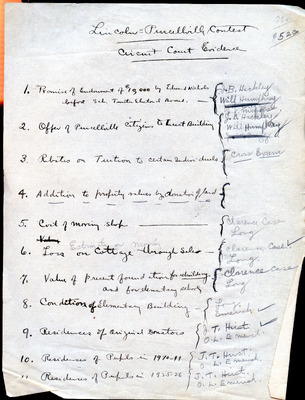 Lincoln = Purcellville Contest
Circuit Court Evidence
1. Promise of Endowment of $9,000 by Edward Nichols
before Sch. Trustee Electoral Board. — J. B. Hickley
Will Humphrey
2. Offer of Purcellville Citizens to Erect Building
Will Humphrey
3. Rebates on Tuition to certain individuals Cross Exam
4. Addition to property values by donation of land
5. Cost of moving shop — Clarence Case
Long
6. Loss on Cottage through Sale — Clarence Case
Long
7. Value of present foundation for building — Clarence Case
and for elementary school Long
8. Condition of Elementary Building — Emerick
9. Residences of Original Donators J. T. Hirst
O. L. Emerick
10. Residences of Pupils in 1910-11 J. T. Hirst
O. L. Emerick
11. Residences of Pupils in 1925-26 J. T. Hirst
O. L. Emerick